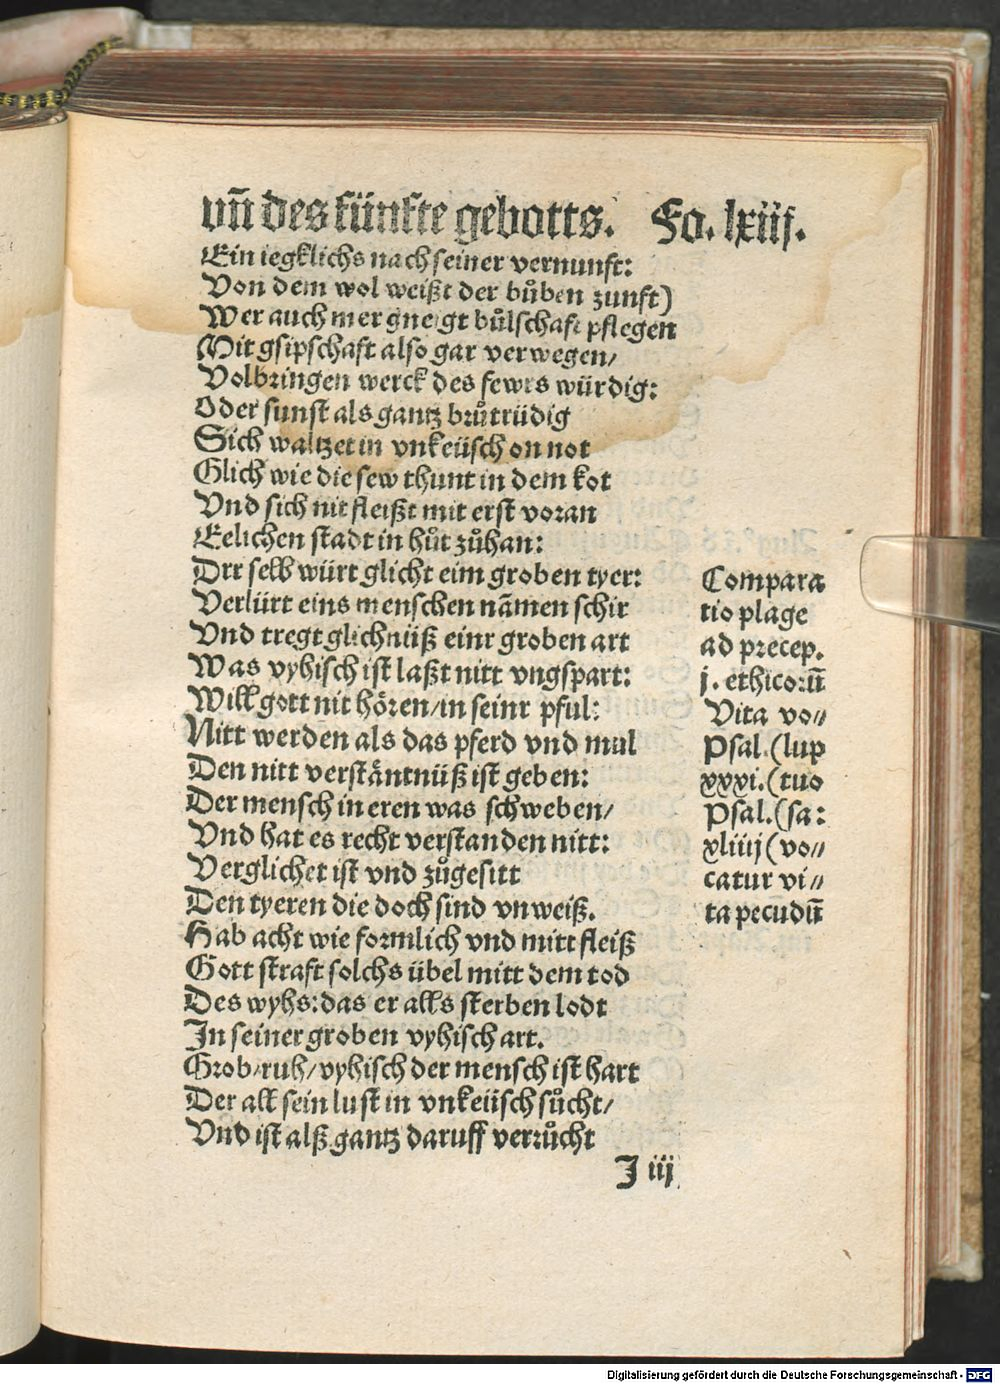 vñ des fünfte gebotts. Fo. lxiij.
Ein iegklichs nach seiner vernunft:
Von dem wol weißt der bůben zunft)
Wer auch mer gneigt bůlschaft pflegen
Mit gsipschaft also gar verwegen/
Volbringen werck des fewrs würdig:
Oder sunst als gantz brůtrüdig
Sich waltzet in vnkeüsch on not
Glich wie die sew thunt in dem kot
Vnd sich nit fleißt mit erst voran
Eelichen stadt in hůt zůhan:
Drr selb würt glicht eim groben tyer:
Verlürt eins menschen nãmen schir
Vnd tregt glichnüß einr groben art
Was vyhisch ist laßt nitt vngspart:
Will gott nit hören/in seinr pful:
Nitt werden als das pferd vnd mul
Den nitt verstäntnüß ist geben:
Der mensch in eren was schweben/
Vnd hat es recht verstanden nitt:
Verglichet ist vnd zůgesitt
Den tyeren die doch sind vnweiß.
Hab acht wie formlich vnd mitt fleiß
Gott straft solchs übel mitt dem tod
Des wyhs: das er alls sterben lodt
In seiner groben vyhisch art.
Grob/ruh/vyhisch der mensch ist hart
Der all sein lust in vnkeüsch sůcht/
Vnd ist alß gantz daruff verrůcht
J iij
Compara
tio plage
ad precep.
j. ethicorũ
Vita vo//
Psal.(lup
xxxi.(tuo
Psal.(sa:
xliiij(vo//
catur vi//
ta pecudũ
Digitalisierung gefördert durch die Deutsche Forschungsgemeinschaft - DFG